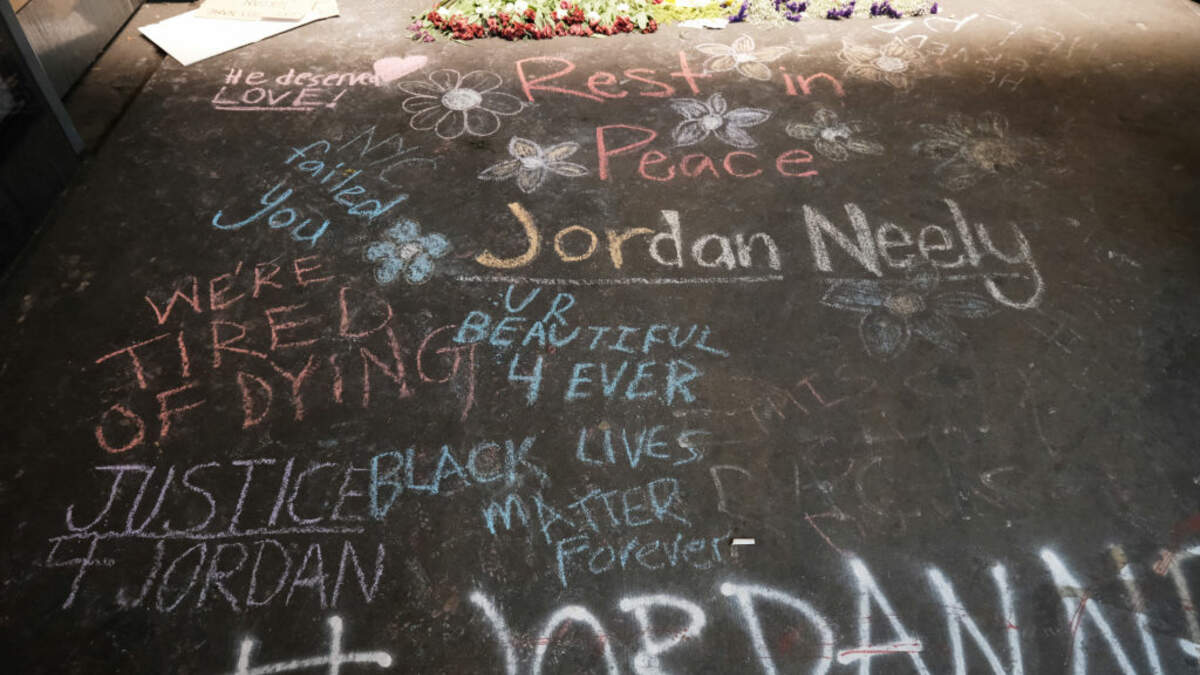 He deserved
LOVE!
Rest in
Peace
NYC
failed
You
Jordan Neely
WE'RE
TIRED
OF DYING
UR
BEAUTIFUL
4 EVER
JUSTICE
4 JORDAN
BLACK LIVES
MATTER
Forever
# JORDAN NE